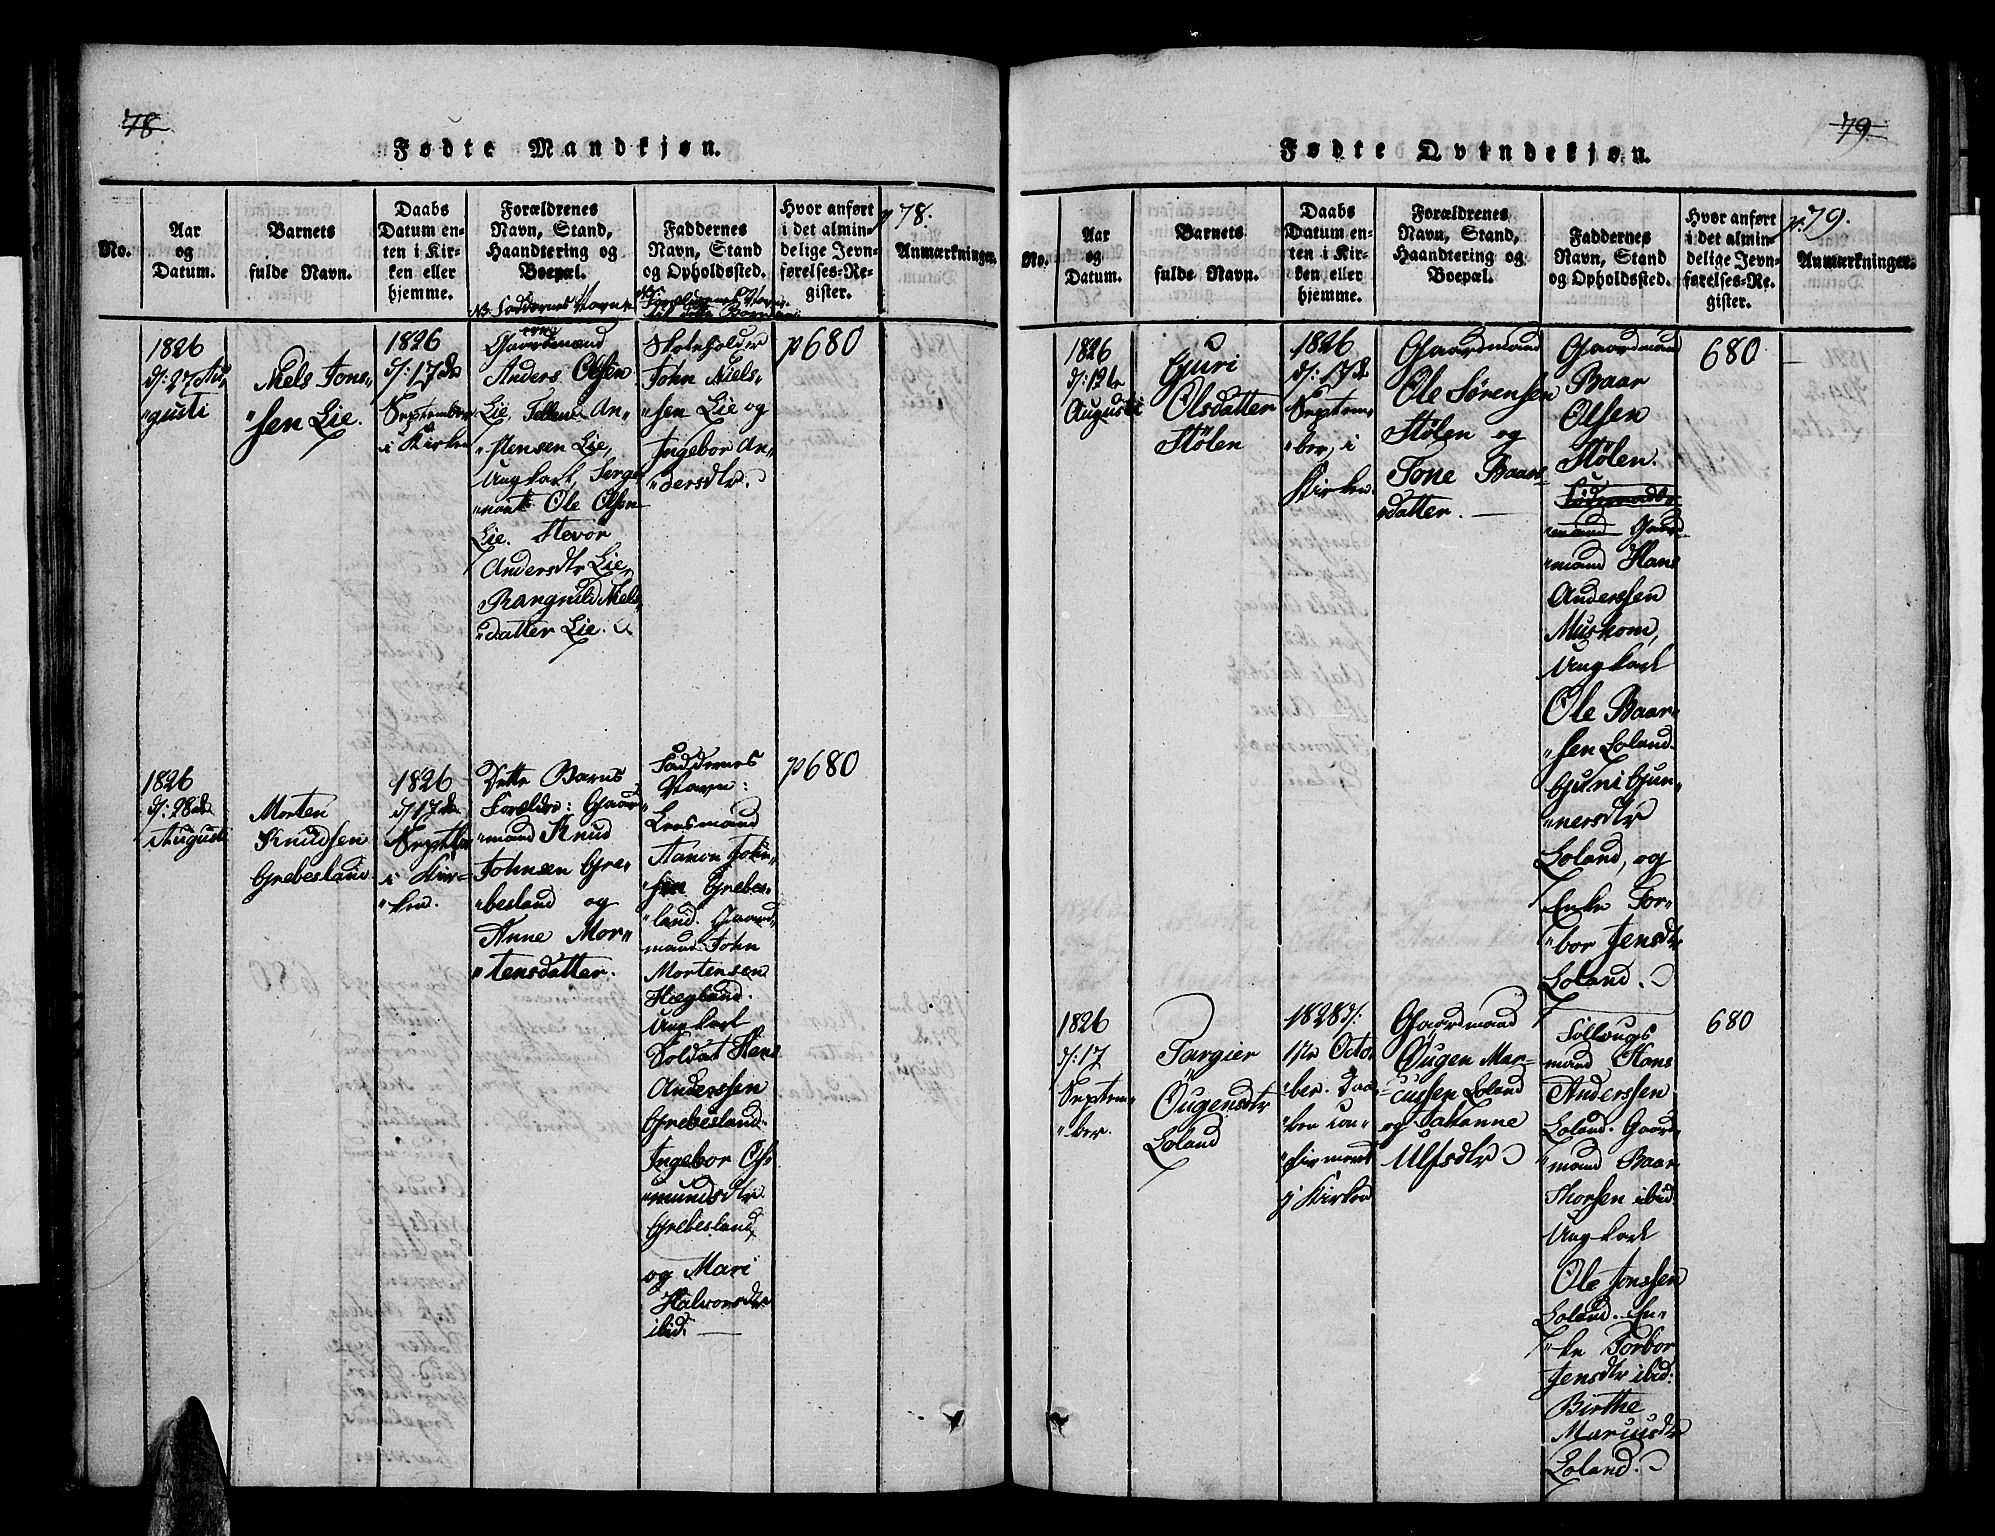 78
Fødte Mandkjøn.
No.
Aar
og
Datum.
Barnets
fulde Navn.
Daabs
Datum en-
ten i Kir-
ken eller
hjemme.
Forældrenes
Navn, Stand,
Haandtering og
Boepæl.
NB Faddernes Navne
Faddernes
Navn, Stand
og Opholdssted.
NB
Forældrenes Navne
til dette Barn
Hvor anført
i det almin-
delige Jevn-
førelses-Re-
gister.
p 78.
Anmærkninger.
1826
d/: 27 Au-
"gusti
Niels Jons-
"sen Lie.
1826
d/: 17de
September
i Kirken
Gaardmand
Anders Olsen
Lie, Tellev An-
"stensen Lie,
Ungkarl, Serge-
"nant Ole Olsen
Lie. Stevor
Andersdtr Lie,
Rangnild Niels
"datter Lie.
Skoleholder
John Niels-
"sen Lie og
Ingebor An-
"dersdtr.
p680
1826
d/: 28de
Augusti
Morten
Knudsen
Grebesland.
1826
d/17de
Septbr
i Kir-
"ken.
Dette Barns
Forældre: Gaar-
"mand Knud
Johnsen Gre-
"besland og
Anne Mor-
"tensdatter.
Faddernes
Navn:
Lensmand
Aanon John-
"sen Grebes-
"land. Gaard-
mand John
Mortensen
Hægland.
Ungkarl
Soldat Hans
Anderssen
Grebesland.
Ingebor Os-
"mundsdtr
Grebesland,
og Mari
Halvorsdtr
ibid.
p680
79
Fødte Qvindekjøn.
No.
Aar
og
Datum.
Barnets
fulde Navn.
Daabs
Datum en-
ten i Kir-
ken eller
hjemme.
Forældrenes
Navn, Stand,
Haandtering og
Boepæl.
Faddernes
Navn, Stand
og Opholdssted.
Hvor anført
i det almin-
delige Jevn-
førelses-Re-
gister.
p. 79.
Anmærkninger.
1826
d/: 12te
Augusti
Gjuri
Olsdatter
Stölen
1826
d/: 17de
Septem-
"ber, i
Kirken.
Gaardmand
Ole Sörensen
Stölen og
Tone Baars-
"datter.
Gaardmand
Baar
Olsen
Stölen.
"mand Gaard
"mand Hans
Anderssen
Muskom,
Ungkarl
Ole Baar-
"sen Loland.
Gjuni Gun-
"nersdtr
Loland, og
Enke Tor-
"bor Jensdtr
Loland.
680
1826
d/: 17
Septem-
"ber.
Targier
Öugensdtr
Loland
1828 d/:
1te Octo-
ber. Daa-
"ben con-
"firmeret
i Kirken
Gaardmand
Öugen Mar-
"cussen Loland
og Johanne
Ulfsdtr
Sollvugs
mand Hans
Anderssen
Loland. Gaard-
"mand Baar
Thorsen ibid.
Ungkarl
Ole Jonssen
Loland. En-
"ke Torbor
Jensdtr ibid:
Birthe
Marcusdtr
Loland.
680